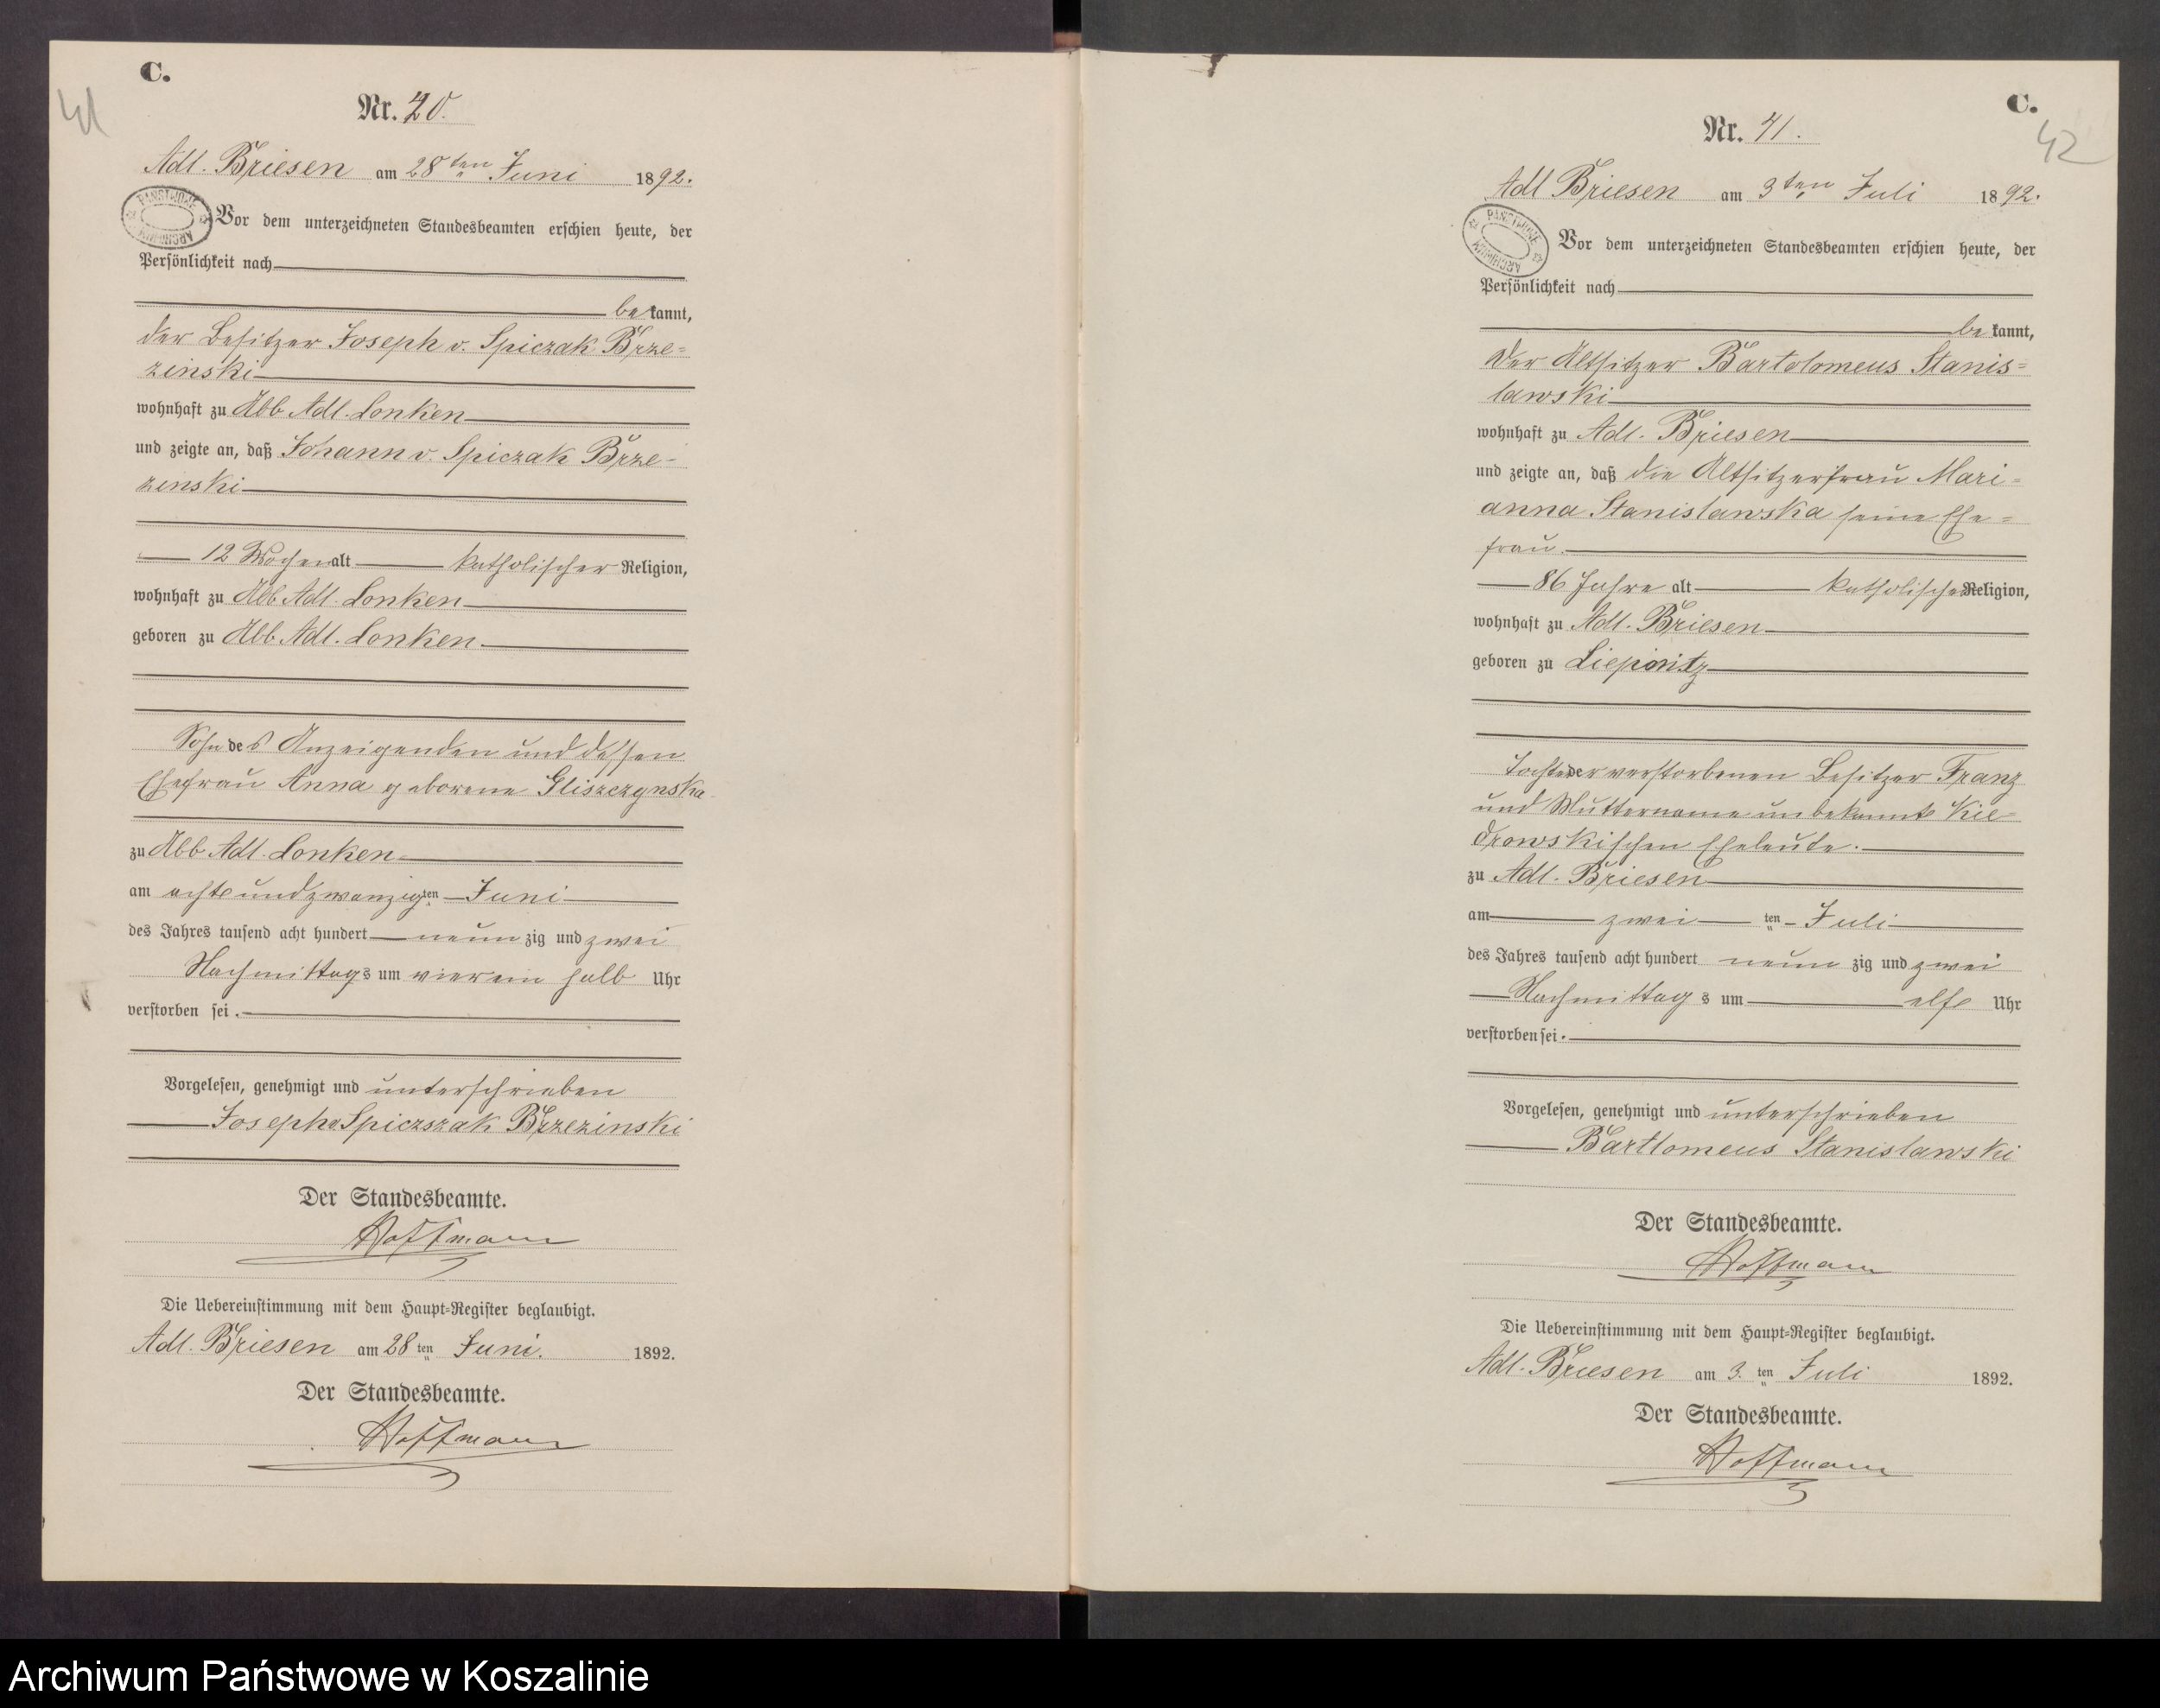 C.
41
Nr. 40.
Adl. Briesen am 28ten Juni 1892.
PAŃSTWOWE ARCHIWUM
Vor dem unterzeichneten Standesbeamten erschien heute, der
Persönlichkeit nach
bekannt,
der Besitzer Joseph v. Spiczak Brze=
zinski
wohnhaft zu Abb. Adl. Lonken
und zeigte an, daß Johann v. Spiczak Brze-
zinski
12 Wochen alt katholischer Religion,
wohnhaft zu Abb. Adl. Lonken
geboren zu Abb. Adl. Lonken
Sohn des Anzeigenden und dessen
Ehefrau Anna geborene Gliszczynska
zu Abb. Adl. Lonken
am acht und zwanzigten Juni
des Jahres tausend acht hundert neunzig und zwei
Nachmittags um vierein halb Uhr
verstorben sei.
Vorgelesen, genehmigt und unterschrieben
Joseph v Spiczszak Brzezinski
Der Standesbeamte.
Hoffmann
Die Uebereinstimmung mit dem Haupt=Register beglaubigt.
Adl. Briesen am 28ten Juni. 1892.
Der Standesbeamte.
Hoffmann
C.
42
Nr. 41.
Adl Briesen am 3ten Juli 1892.
PAŃSTWOWE ARCHIWUM
Vor dem unterzeichneten Standesbeamten erschien heute, der
Persönlichkeit nach
bekannt,
der Altsitzer Bartolomeus Stanis=
lawski
wohnhaft zu Adl. Briesen
und zeigte an, daß die Altsitzerfrau Mari=
anna Stanislawska seine Ehe=
frau.
86 Jahre alt katholischer Religion,
wohnhaft zu Adl. Briesen
geboren zu
Tochter der verstorbenen Besitzer Franz
und Muttername unbekannt Kie=
drowskischen Eheleute.
zu Adl. Briesen
am zwei ten Juli
des Jahres tausend acht hundert neunzig und zwei
Nachmittags um elf Uhr
verstorben sei.
Vorgelesen, genehmigt und unterschrieben
Bartlomeus Stanislawski
Der Standesbeamte.
Hoffmann
Die Uebereinstimmung mit dem Haupt=Register beglaubigt.
Adl. Briesen am 3.ten Juli 1892.
Der Standesbeamte.
Hoffmann
Archiwum Państwowe w Koszalinie